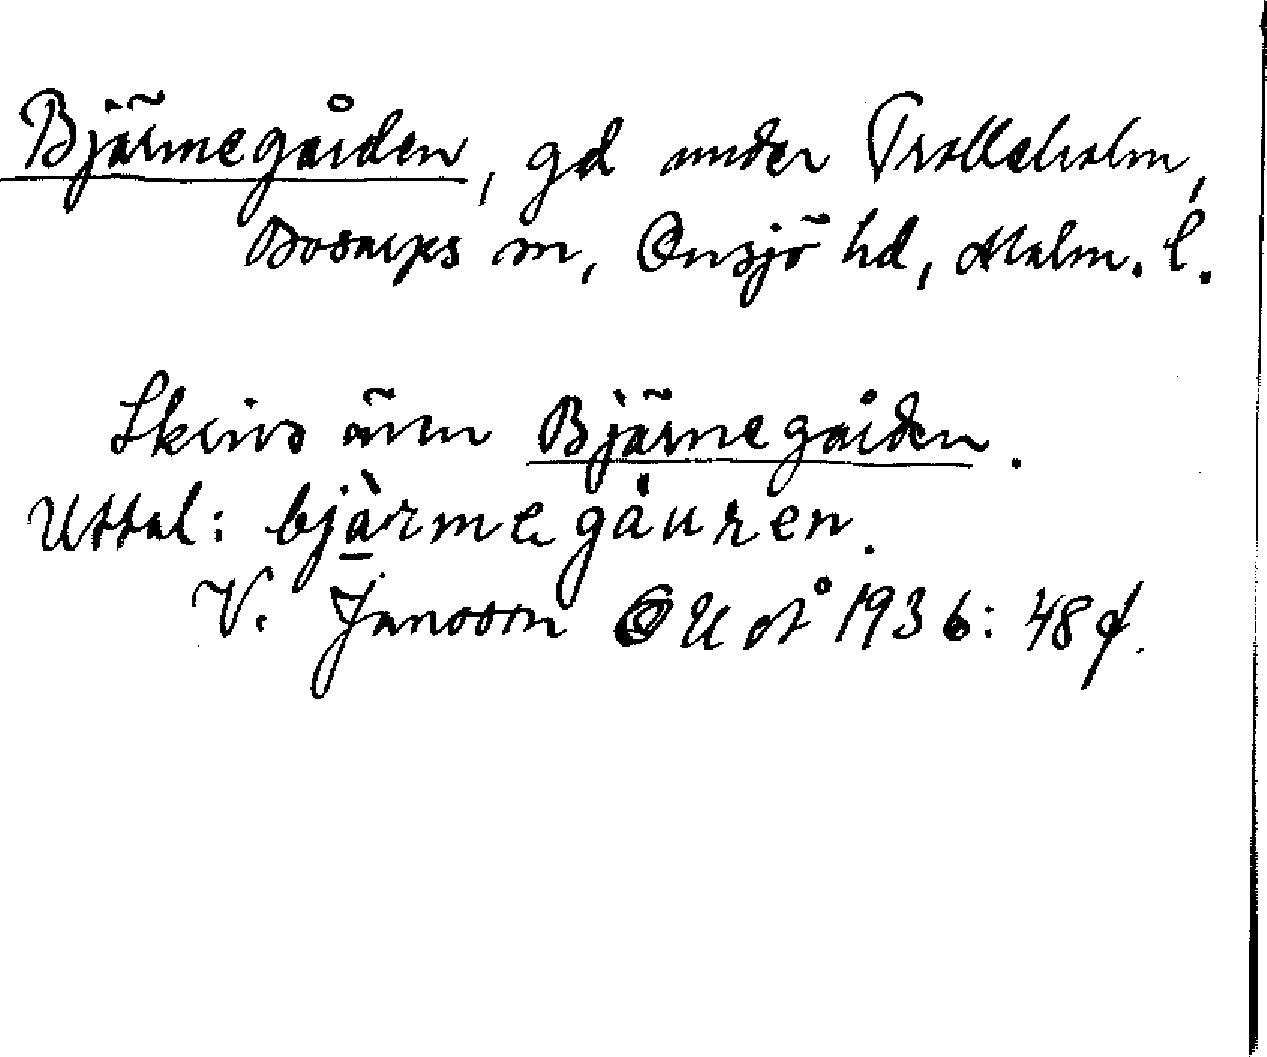 Bjärmegården, gd under Trolleholm,
Bosarps sn, Onsjö hd, Malm. l.
Skrivs även Bjärnegården.
Uttal: bjàrmegáuren.
V. Jansson UUÅ 1936: